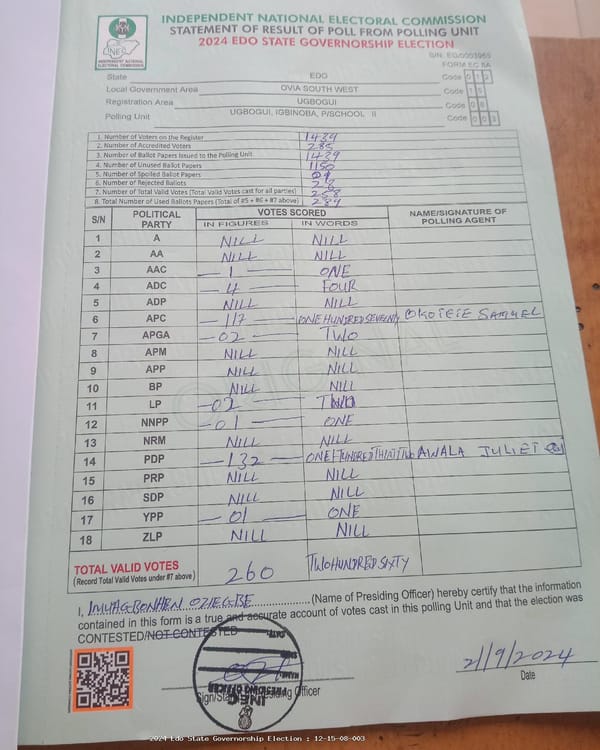 INDEPENDENT NATIONAL ELECTORAL COMMISSION
STATEMENT OF RESULT OF POLL FROM POLLING UNIT
2024 EDO STATE GOVERNORSHIP ELECTION
INEC
INDEPENDENT NATIONAL ELECTORAL COMMISSION
FORM EC 8A
State EDO Code 012
Local Government Area OVIA SOUTH WEST Code
Registration Area UGBOGUI Code 08
Polling Unit UGBOGUI, IGBINOBA, P/SCHOOL II Code 003
1. Number of Voters on the Register 1439
2. Number of Accredited Voters
3. Number of Ballot Papers Issued to the Polling Unit 1439
4. Number of Unused Ballot Papers 1150
5. Number of Spoiled Ballot Papers
6. Number of Rejected Ballots
7. Number of Total Valid Votes (Total Valid Votes cast for all parties)
8. Total Number of Used Ballots Papers (Total of #5 + #6 + #7 above) 289
S/N POLITICAL PARTY VOTES SCORED NAME/SIGNATURE OF POLLING AGENT
IN FIGURES IN WORDS
1 A NILL NILL
2 AA NILL NILL
3 AAC 1 ONE
4 ADC 4 FOUR
5 ADP NILL NILL
6 APC 117 ONE HUNDRED SEVENTY OKOIEIE SAMUEL
7 APGA 02 TWO
8 APM NILL NILL
9 APP NILL NILL
10 BP NILL NILL
11 LP 02 TWO
12 NNPP 01 ONE
13 NRM NILL NILL
14 PDP 132 ONE HUNDRED THIRTY TWO AWALA JULIET
15 PRP NILL NILL
16 SDP NILL NILL
17 YPP 01 ONE
18 ZLP NILL NILL
TOTAL VALID VOTES
(Record Total Valid Votes under #7 above) 260 TWO HUNDRED SIXTY
I, IMUAGBONHEN OZIEGBE (Name of Presiding Officer) hereby certify that the information
contained in this form is a true and accurate account of votes cast in this polling Unit and that the election was
CONTESTED/NOT CONTESTED
2/9/2024
Sign/Stamp of Presiding Officer Date
INEC
PRESIDING OFFICER
NAME
SIGN
DATE
2024 Edo State Governorship Election : 12-15-08-003